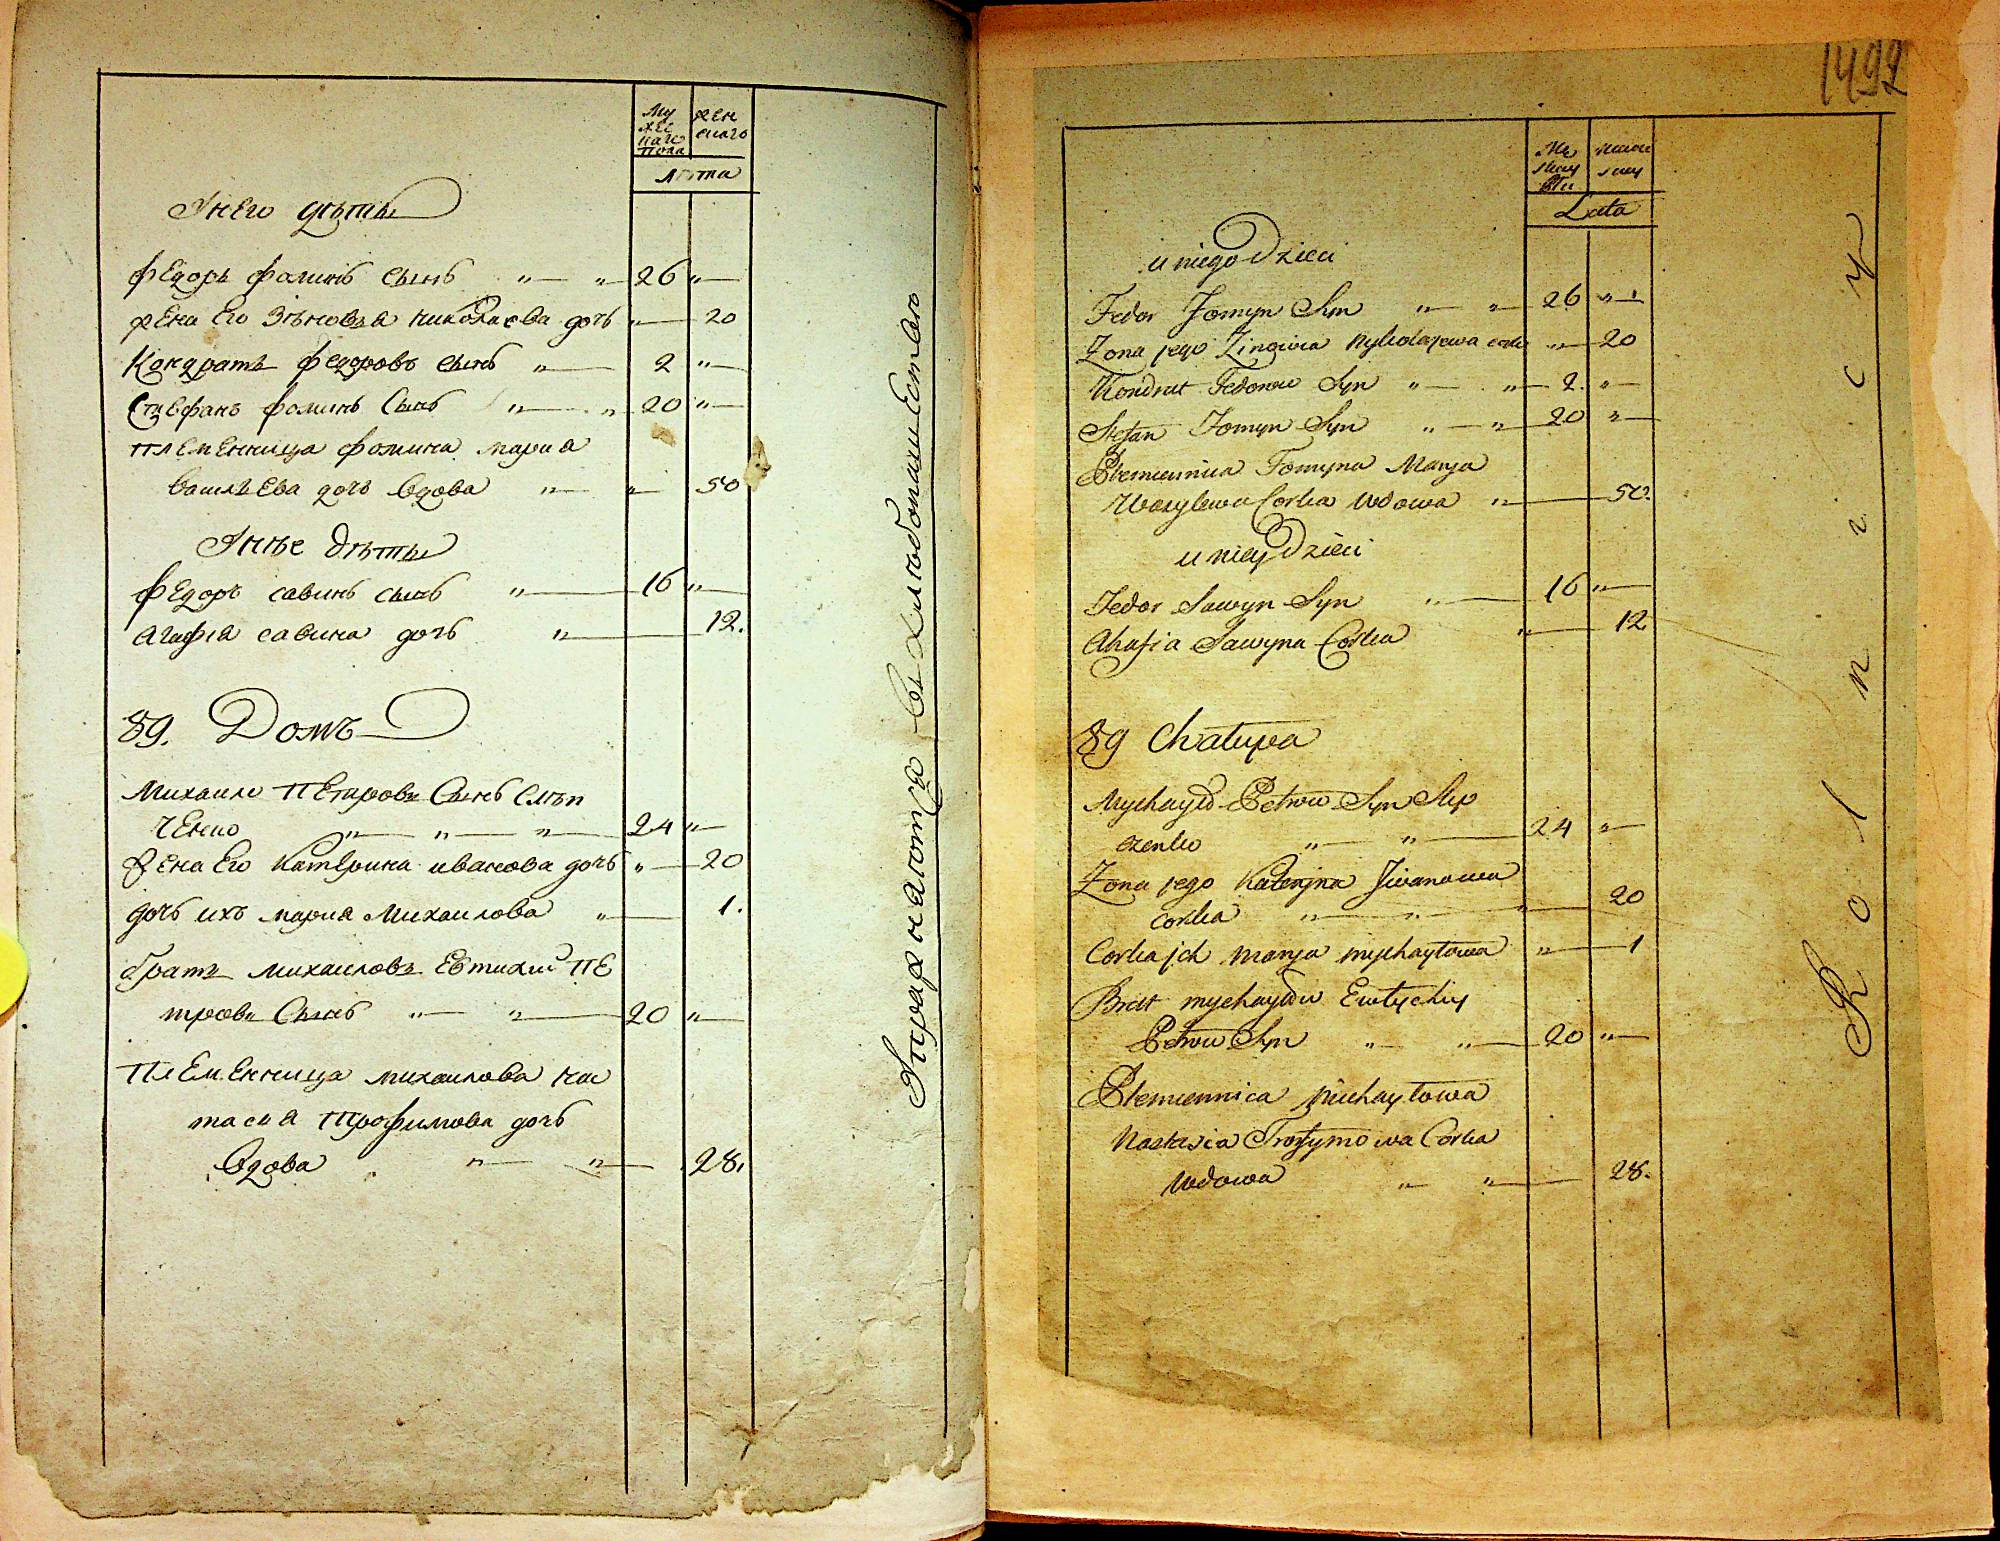 Му
жес
каго
пола
жен
скаго
лѣта
У него дѣты
Федоръ Фоминъ сынъ „ — „ 26 „ —
жена его Зѣновѣа Николаева дочь „ — 20
Кондратъ Федоровъ сынъ „ — 2 „ —
Стефанъ Фоминъ сынъ „ — „ 20 „ —
племенница Фомина Мариа
Василѣева дочь вдова „ — „ — 50
У нѣе дѣты
Федоръ Савинъ сынъ „ — 16 „ —
Агафиа Савина дочь „ — 12.
89. Домъ
Михаило Петровъ сынъ Слѣп
ченко „ — „ — „ — 24 „ —
жена его Катерина Иванова дочь „ — 20
дочь ихъ Мариа Михаилова „ — 1.
братъ Михаиловъ Евтихий Пе
тровъ сынъ „ — „ — 20 „ —
племенница Михаилова Нас
тасиа Трофимова дочь
вдова „ — „ — 28.
Упражняютса въ хлѣбопашествѣ
1492
Lata
u niego Dzieci
Fedor Fomyn Syn „ — „ — 26 „ —
Zona jego Zinowia Mykołajewa corka „ — 20
Kondrat Fedorow Syn „ — „ — 2. „ —
Stefan Fomyn Syn „ — „ — 20 „ —
Plemiennica Fomyna Marya
Wasylewa Corka Wdowa „ — 50.
u niey Dzieci
Fedor Sawyn Syn „ — 16 „ —
Ahafia Sawyna Corka „ — 12
89 Chałupa
Mychayło Petrow Syn Slip
czenko „ — „ — 24 „ —
Zona jego Kateryna Jwanowa
corka „ — „ — „ — 20
Corka jch Marya Mychayłowa „ — 1
Brat Mychayłow Ewtychiy
Petrow Syn „ — „ — 20 „ —
Plemiennica Michayłowa
Nastasia Trofymowa Corka
Wdowa „ — „ — 28.
Rolnicy